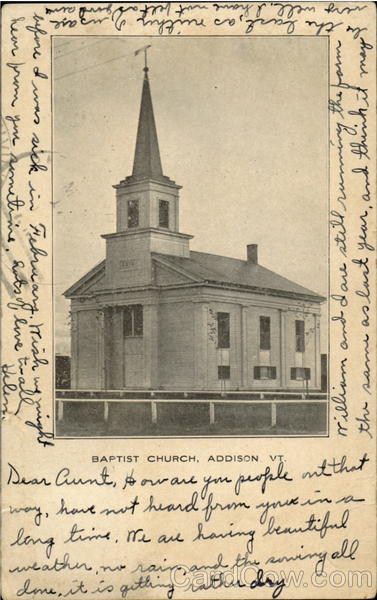 BAPTIST CHURCH, ADDISON VT.
Dear Aunt, How are you people out that
way, have not heard from you in a
long time. We are having beautiful
weather, no rain, and the sowing all
done, it is getting rather dry
William and I are still running the farm
the same as last year, and think it may be
the last, as neither of us are
very well, I have not felt as good
before I was sick in February. Wish we might
hear from you sometime. Lots of love to all
Helen.
CardCow.com